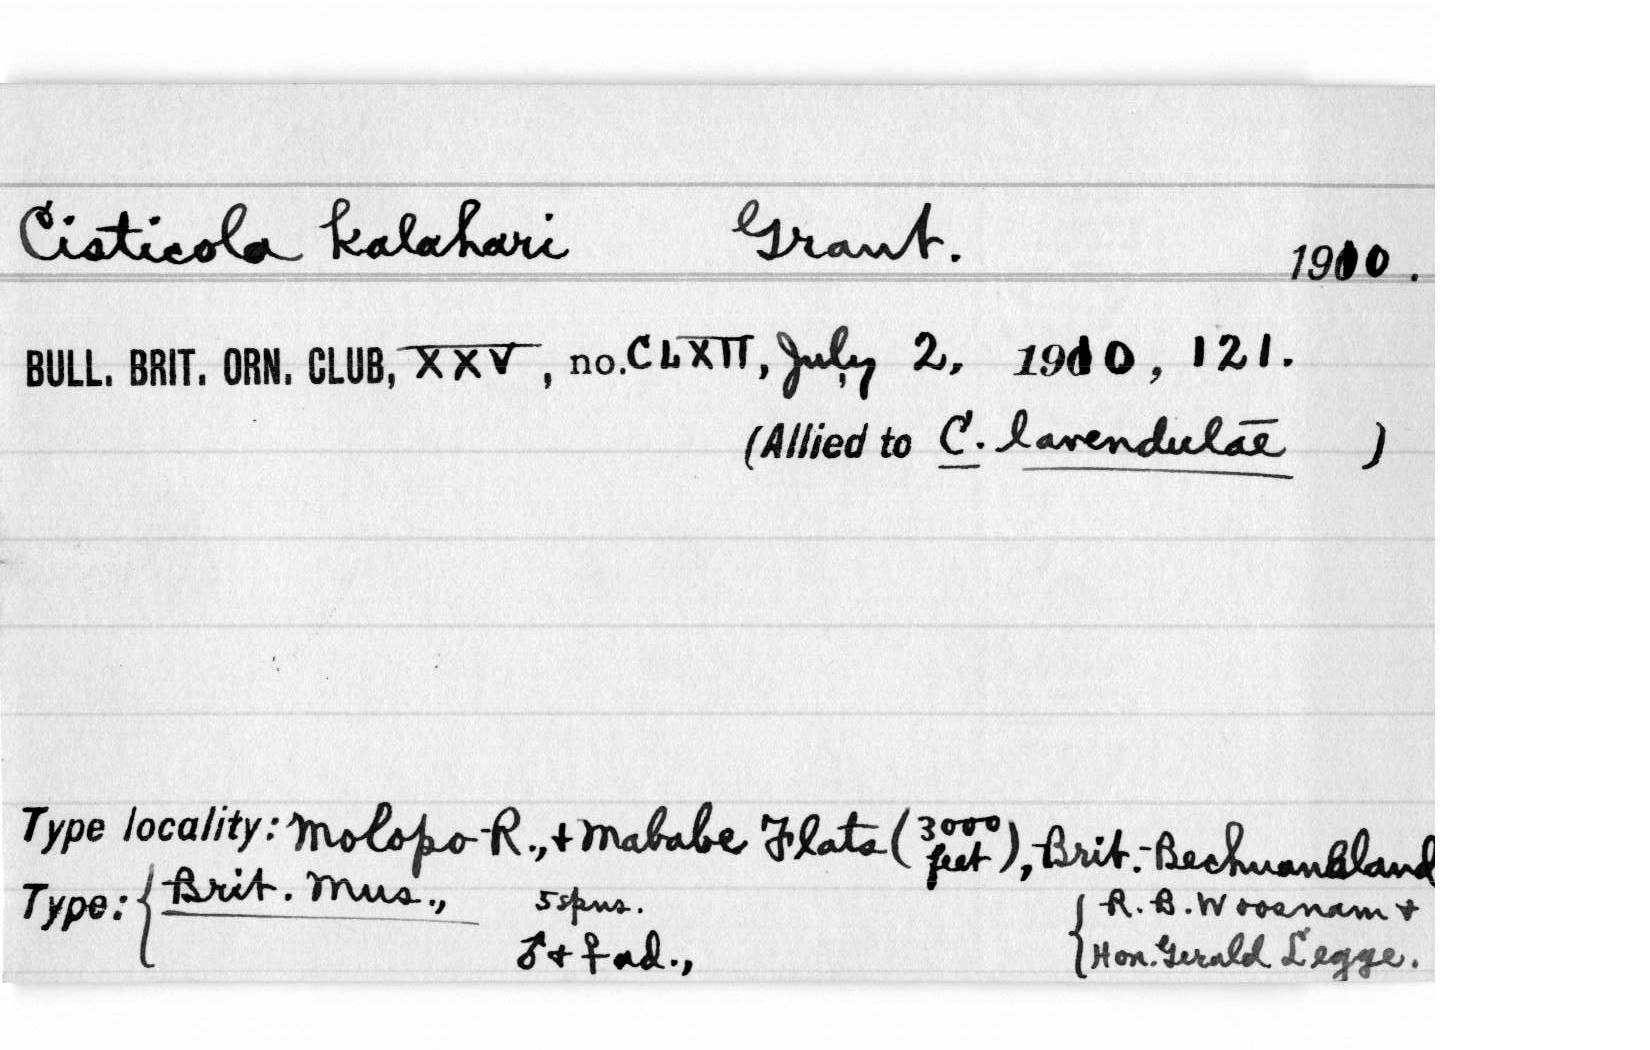 Cisticola kalahari Grant. 1910.
BULL. BRIT. ORN. CLUB, XXV, no. CLXII, July 2, 1910, 121.
(Allied to C. lavendulae )
Type locality: Molopo R., + Mababe Flats (3000 feet), Brit. Bechuanaland
Type: { Brit. Mus., 5 spns. { R. B. Woosnam +
♂ + ♀ ad., Hon. Gerald Legge.